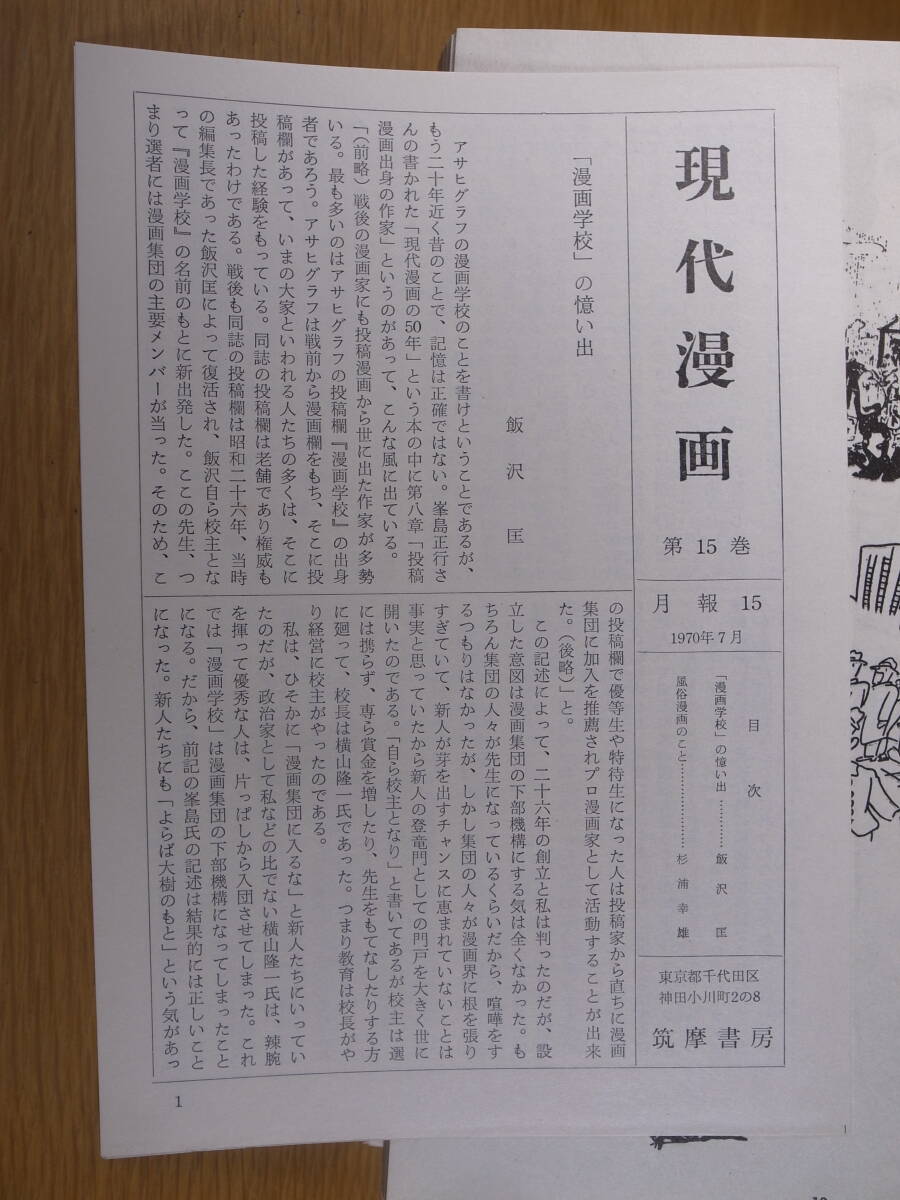 現代漫画
第15巻
月報15
1970年7月
目次
「漫画学校」の憶い出…………飯沢匡
風俗漫画のこと………………杉浦幸雄
東京都千代田区
神田小川町2の8
筑摩書房
「漫画学校」の憶い出
飯沢匡
アサヒグラフの漫画学校のことを書けということであるが、
もう二十年近く昔のことで、記憶は正確ではない。峯島正行さ
んの書かれた「現代漫画の50年」という本の中に第八章「投稿
漫画出身の作家」というのがあって、こんな風に出ている。
「（前略）戦後の漫画家にも投稿漫画から世に出た作家が多勢
いる。最も多いのはアサヒグラフの投稿欄『漫画学校』の出身
者であろう。アサヒグラフは戦前から漫画欄をもち、そこに投
稿欄があって、いまの大家といわれる人たちの多くは、そこに
投稿した経験をもっている。同誌の投稿欄は老舗であり権威も
あったわけである。戦後も同誌の投稿欄は昭和二十六年、当時
の編集長であった飯沢匡によって復活され、飯沢自ら校主とな
って『漫画学校』の名前のもとに新出発した。ここの先生、つ
まり選者には漫画集団の主要メンバーが当った。そのため、こ
の投稿欄で優等生や特待生になった人は投稿家から直ちに漫画
集団に加入を推薦されプロ漫画家として活動することが出来
た。（後略）」と。
この記述によって、二十六年の創立と私は判ったのだが、設
立した意図は漫画集団の下部機構にする気は全くなかった。も
ちろん集団の人々が先生になっているくらいだから、喧嘩をす
るつもりはなかったが、しかし集団の人々が漫画界に根を張り
すぎていて、新人が芽を出すチャンスに恵まれていないことは
事実と思っていたから新人の登竜門としての門戸を大きく世に
開いたのである。「自ら校主となり」と書いてあるが校主は選
には携らず、専ら賞金を増したり、先生をもてなしたりする方
に廻って、校長は横山隆一氏であった。つまり教育は校長がや
り経営に校主がやったのである。
私は、ひそかに「漫画集団に入るな」と新人たちにいってい
たのだが、政治家として私などの比でない横山隆一氏は、辣腕
を揮って優秀な人は、片っぱしから入団させてしまった。これ
では「漫画学校」は漫画集団の下部機構になってしまったこと
になる。だから、前記の峯島氏の記述は結果的には正しいこと
になった。新人たちにも「よらば大樹のもと」という気があっ
1